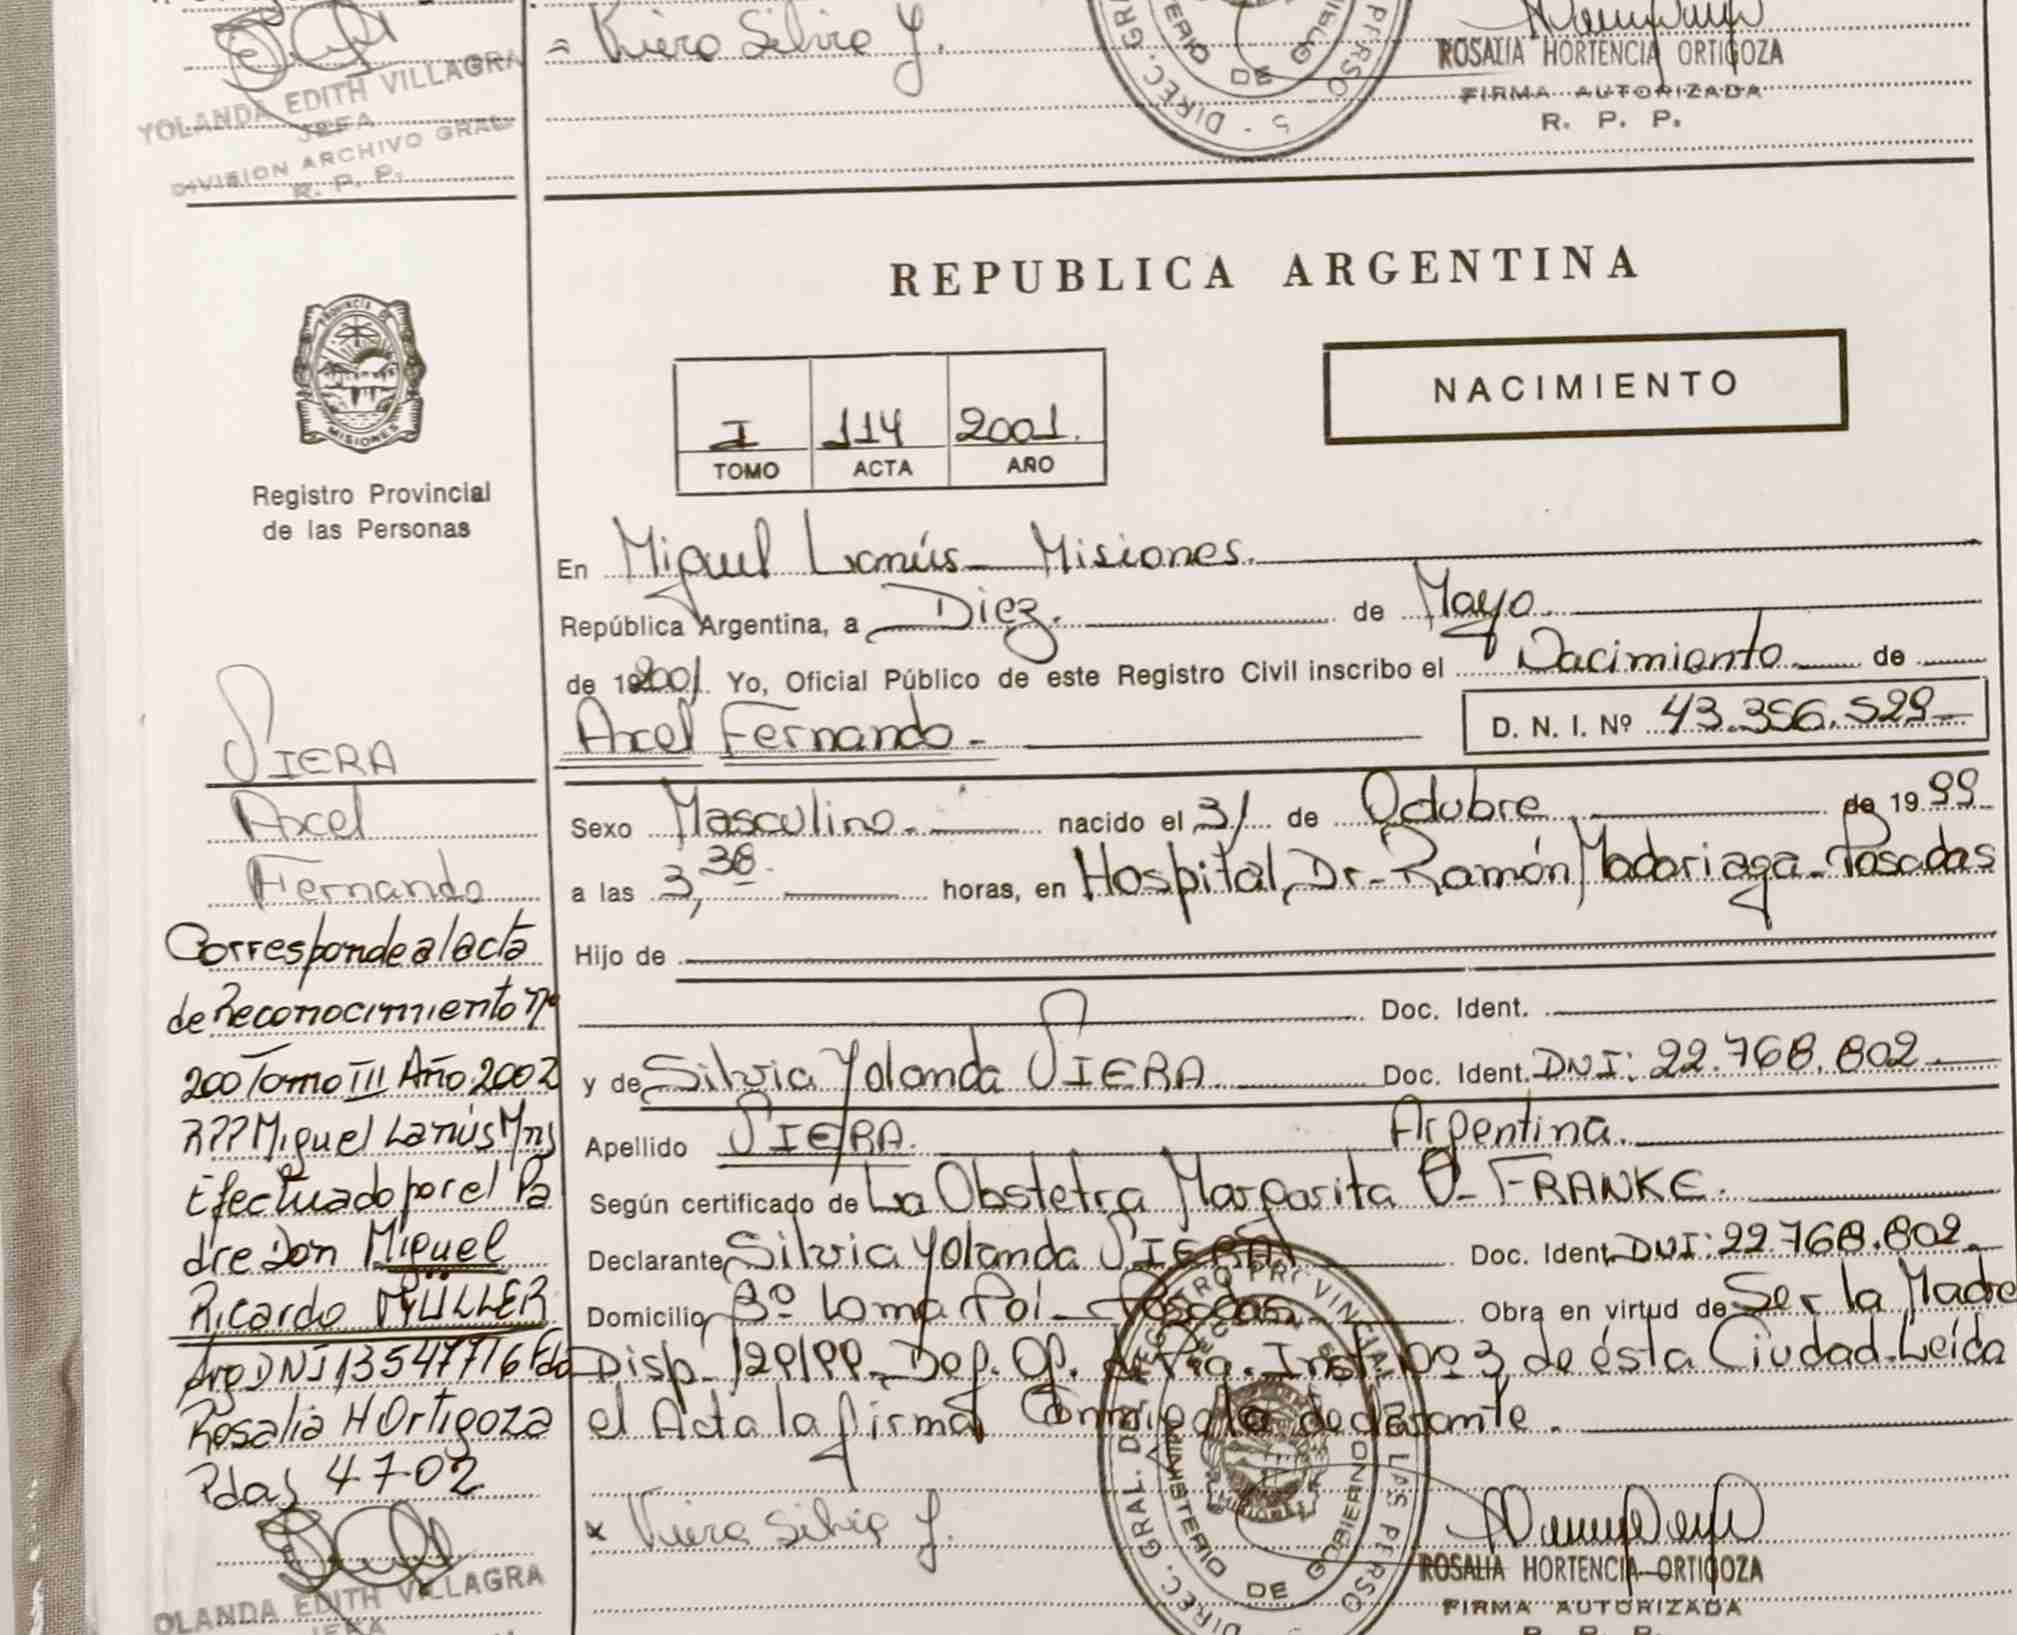 YOLANDA EDITH VILLAGRA
JEFA
DIVISION ARCHIVO GRAL.
R. P. P.
Silvia Y.
DIREC. GRAL.
DE
ROSALIA HORTENCIA ORTIGOZA
FIRMA AUTORIZADA
R. P. P.
REPUBLICA ARGENTINA
PROVINCIA DE
MISIONES
Registro Provincial
de las Personas
I 114 2001.
TOMO ACTA AÑO
NACIMIENTO
En Miguel Lanús - Misiones.
República Argentina, a Diez. de Mayo.
de 2001. Yo, Oficial Público de este Registro Civil inscribo el Nacimiento de
Axel Fernando.- D. N. I. Nº 43.356.529
VIERA
Axel
Fernando
Sexo Masculino. nacido el 31 de Octubre de 1999
a las 3,38. horas, en Hospital, Dr. Ramón Madariaga - Posadas
Hijo de
Doc. Ident.
y de Silvia Yolanda VIERA Doc. Ident. DNI: 22.768.802
Apellido VIERA. Argentina.
Según certificado de La Obstetra Margarita O. FRANKE.
Declarante Silvia Yolanda VIERA Doc. Ident. DNI: 22.768.802
Domicilio Bº Loma Poi - Posadas. Obra en virtud de Ser la Madre
Disp. 129/99. Def. Of. de Inst. nº 3 de ésta Ciudad. Leída
el Acta la firma Conmigo la declarante.
Corresponde al acta
de Reconocimiento nº
200 Tomo III Año 2002
RPP Miguel Lanús Mns
Efectuado por el Pa
dre Don Miguel
Ricardo MÜLLER
Arg DNI 13547716 Fdo
Rosalia H Ortigoza
Pdas 4-7-02
Viera Silvia Y.
DIREC. GRAL. DEL REGISTRO PROVINCIAL DE LAS PERSO
MINISTERIO DE GOBIERNO
ROSALIA HORTENCIA ORTIGOZA
FIRMA AUTORIZADA
R. P. P.
OLANDA EDITH VILLAGRA
JEFA